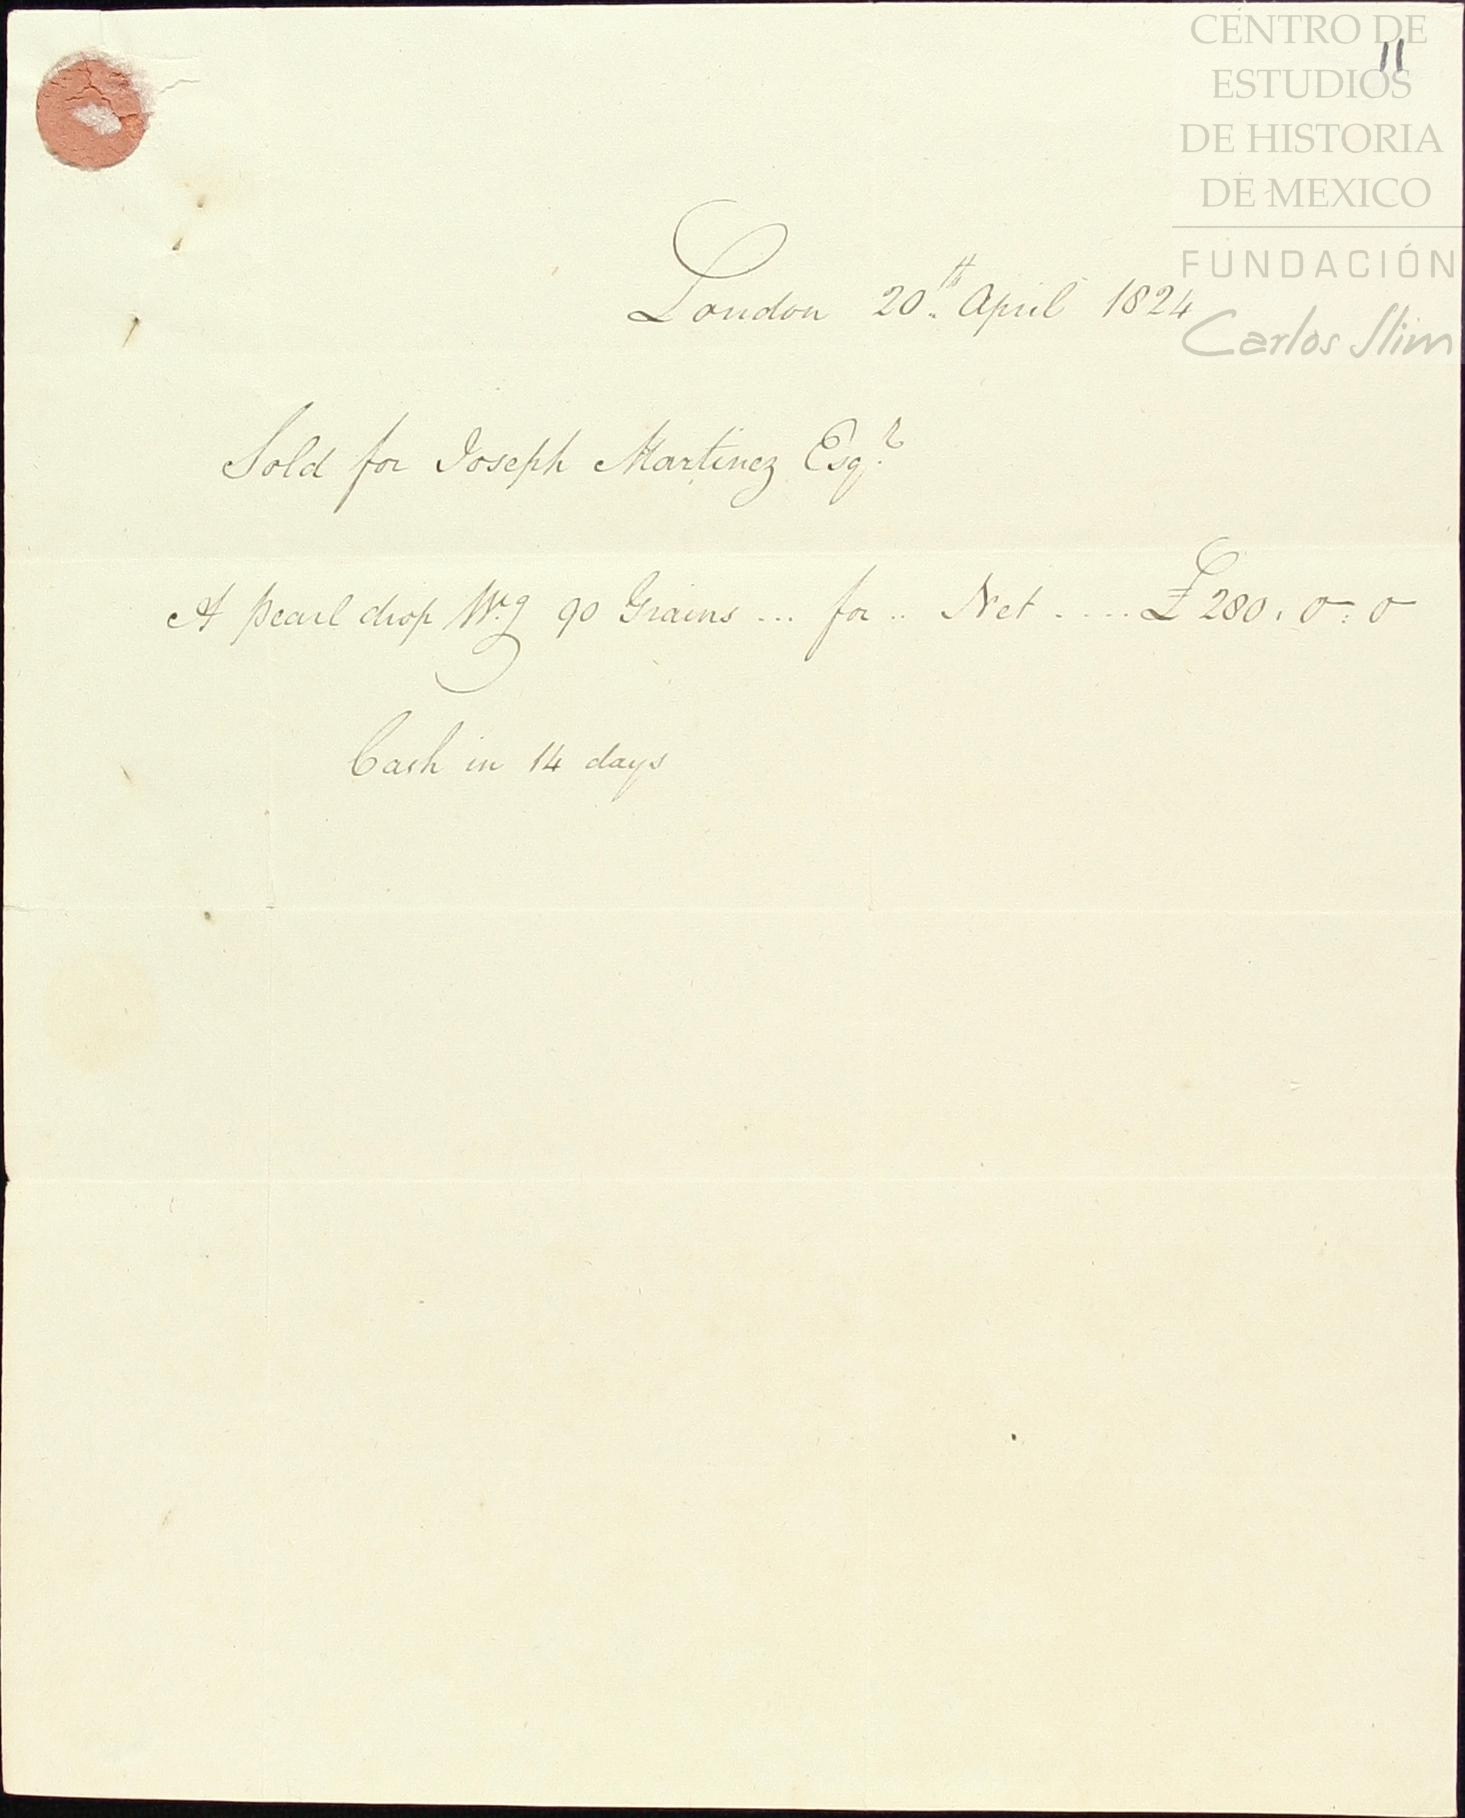 CENTRO DE
ESTUDIOS
DE HISTORIA
DE MEXICO
FUNDACIÓN
Carlos Slim
11
London 20th April 1824
Sold for Joseph Martinez Esqr
A pearl drop Wg 90 Grains ... for .. Net ..... £280 : 0 : 0
Cash in 14 days